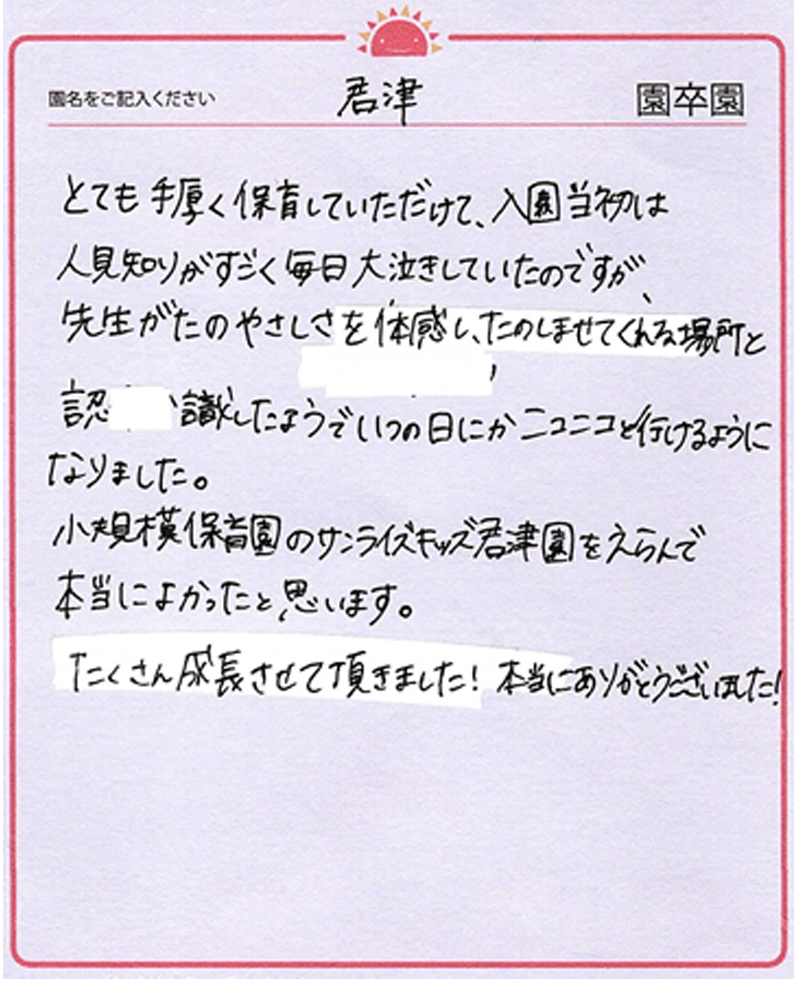 園名をご記入ください 君津 園卒園
とても手厚く保育していただけて、入園当初は
人見知りがすごく毎日大泣きしていたのですが、
先生がたのやさしさを体感し、たのしませてくれる場所と
認識したようでいつの日にかニコニコと行けるように
なりました。
小規模保育園のサンライズキッズ君津園をえらんで
本当によかったと思います。
たくさん成長させて頂きました！本当にありがとうございました！